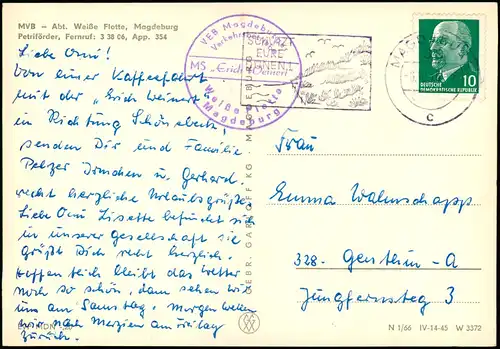 MVB – Abt. Weiße Flotte, Magdeburg
Petriförder, Fernruf: 3 38 06, App. 354
Liebe Omi!
Von einer Kaffeefahrt
mit der „Erich Weinert"
in Richtung Schönebeck,
senden Dir und Familie
Pelzer Irmchen u. Gerhard
recht herzliche Urlaubsgrüße.
Liebe Omi Lisette befindet sich
in unserer Gesellschaft sie
grüßt Dich recht herzlich.
Hoffentlich bleibt das Wetter
noch so schön, dann sehen wir
uns am Samstag. Morgen wollen
wir nach am Freitag
zurück.
VEB Magdeburger
Verkehrsbetriebe
MS „Erich Weinert"
Weiße Flotte
Magdeburg
SCHÜTZT
EURE
MAGD
c
DEUTSCHE
DEMOKRATISCHE REPUBLIK
10
GEBR. GARLOFF KG. MAGDEBURG
Frau
Emma Wahnschapp
328. Genthin-A
Jungfernsteg 3
N 1/66 IV-14-45 W 3372